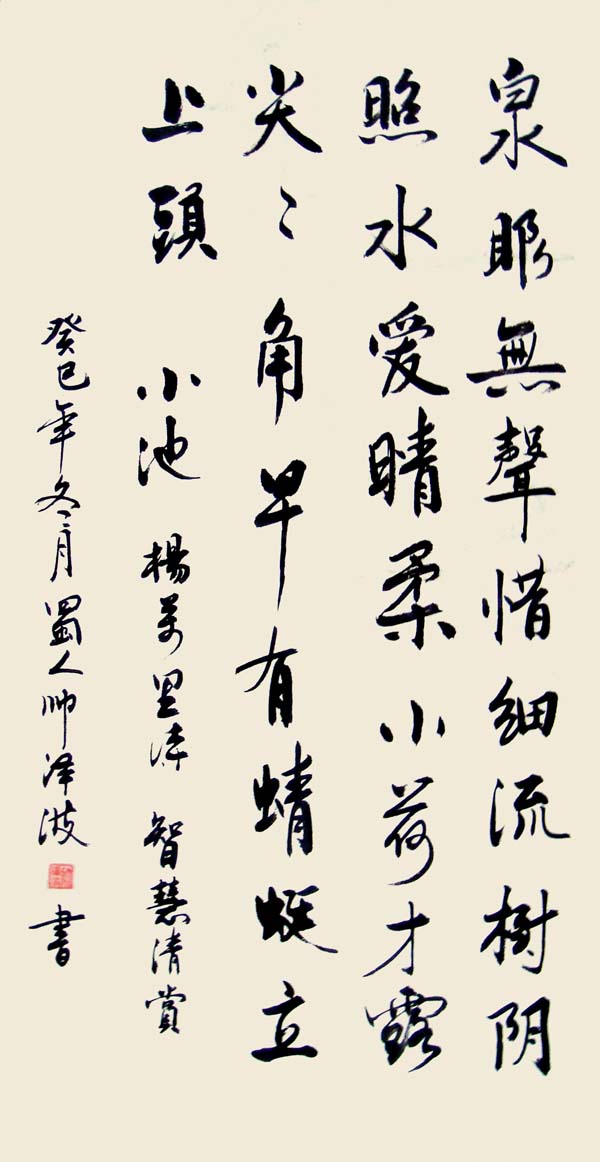 泉眼無聲惜細流樹阴
照水爱晴柔小荷才露
尖〻角早有蜻蜓立
上頭 小池 楊萬里诗 智慧清賞
癸巳年冬月蜀人帅泽波書